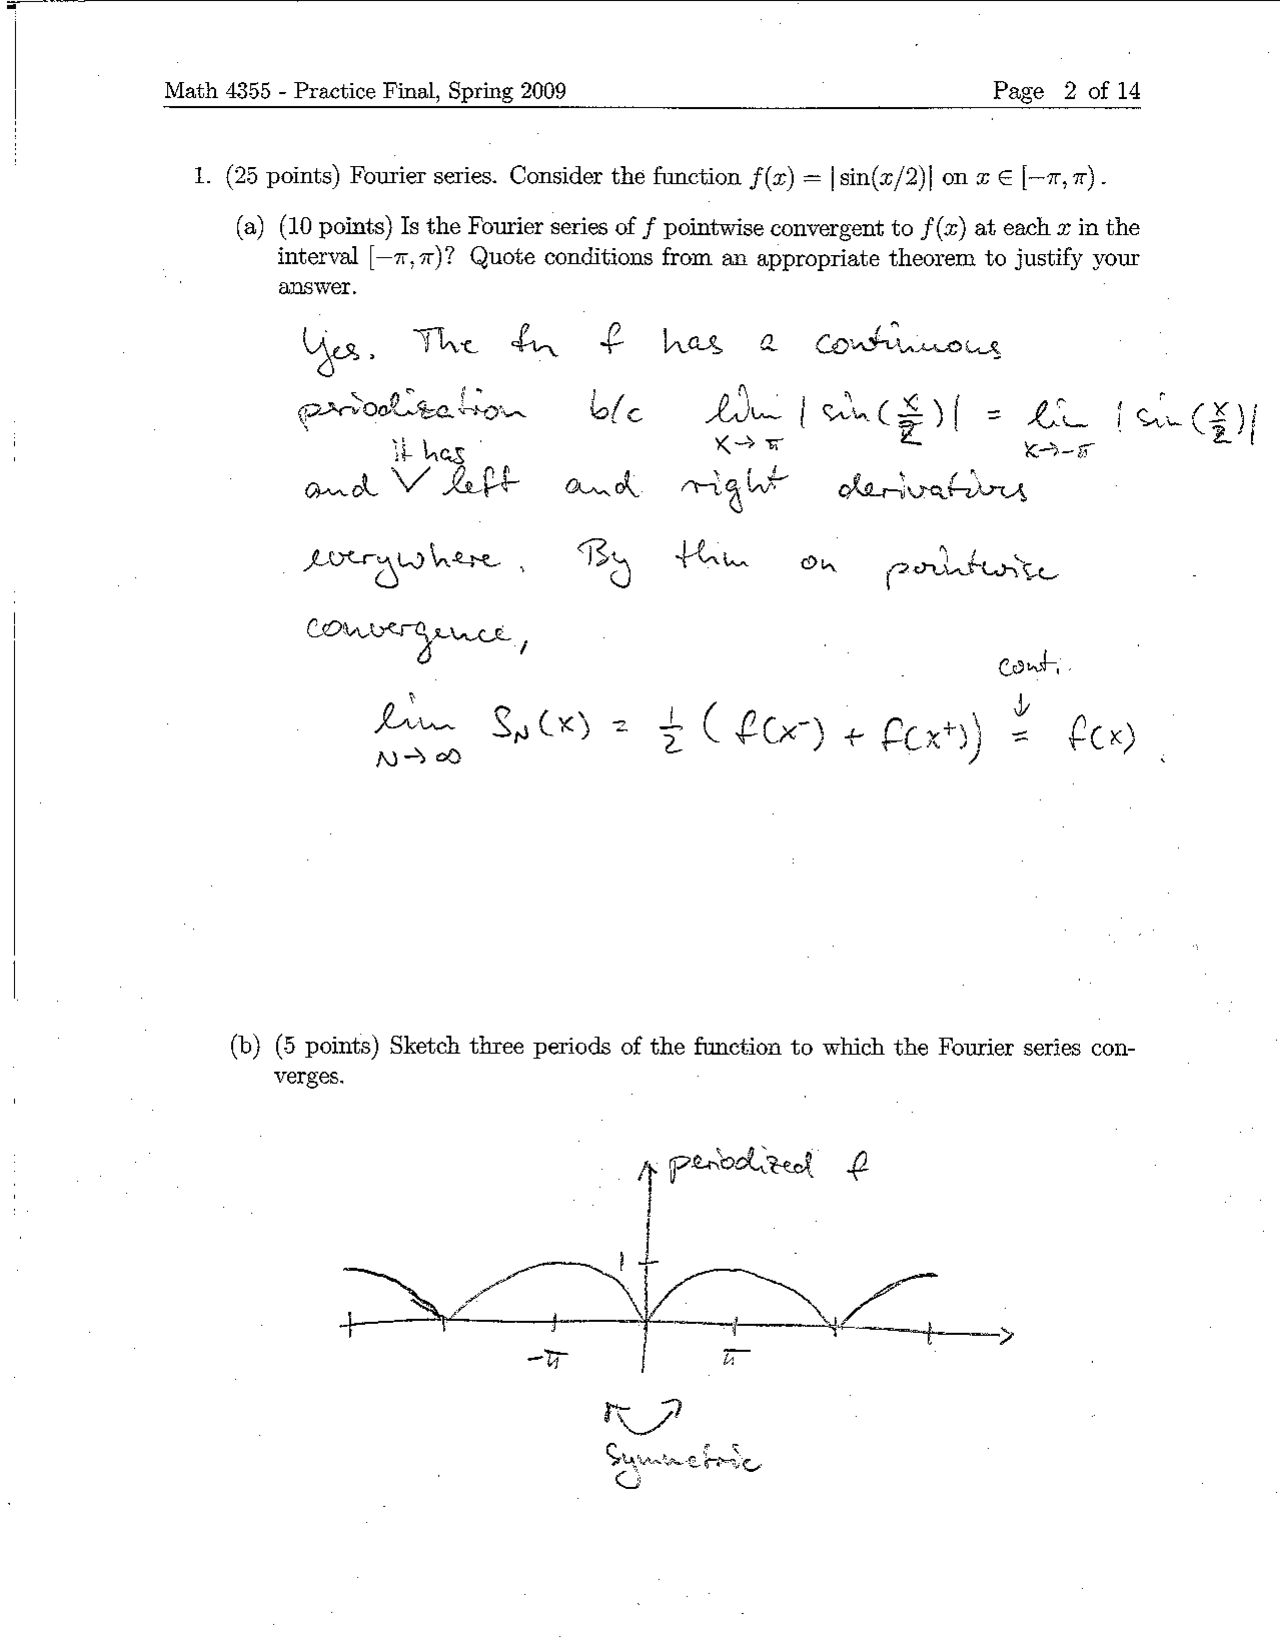 Math 4355 - Practice Final, Spring 2009 Page 2 of 14
1. (25 points) Fourier series. Consider the function f(x) = | sin(x/2)| on x ∈ [−π, π) .
(a) (10 points) Is the Fourier series of f pointwise convergent to f(x) at each x in the
interval [−π, π)? Quote conditions from an appropriate theorem to justify your
answer.
Yes. The fn f has a continuous
periodization b/c lim | sin(x/2)| = lim | sin(x/2)|
x→π x→-π
it has
and ∨ left and right derivatives
everywhere. By thm on pointwise
convergence,
cont.
↓
lim S_N(x) = 1/2 ( f(x⁻) + f(x⁺)) = f(x).
N→∞
(b) (5 points) Sketch three periods of the function to which the Fourier series con-
verges.
periodized f
1
-π π
symmetric